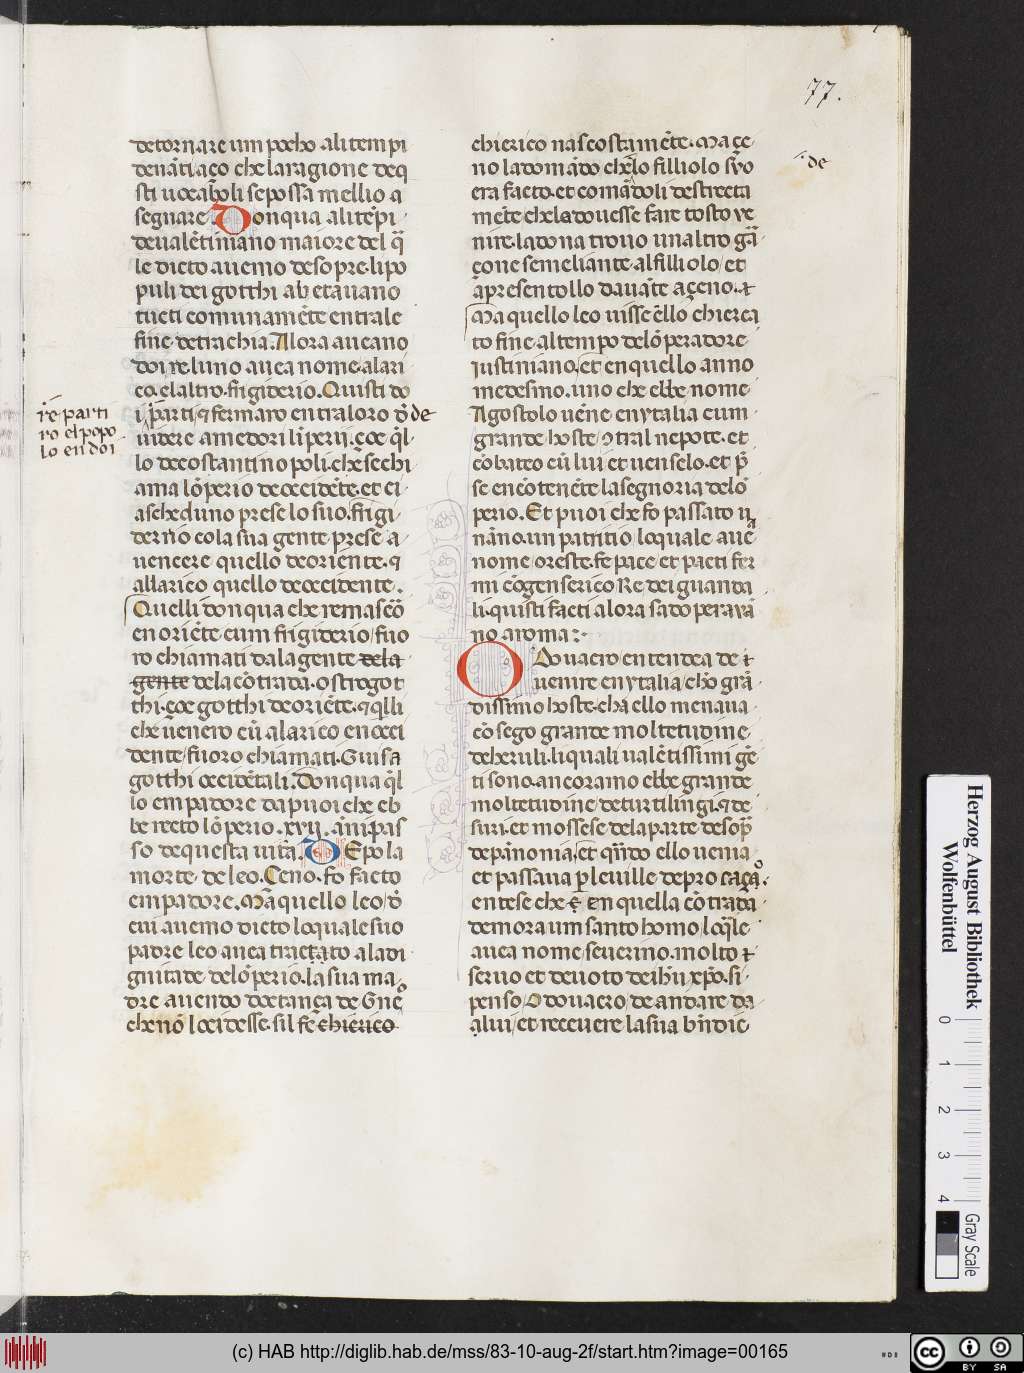 77.
de tornare um pocho · ali tempi
denãti açò che la ragione deq̃
sti uocaboli se possa mellio a
segnare. Donqua ali tẽpi
de ualẽtiniano maiore del q̃
le dicto auemo de sopre · li po
puli dei gotthi abetauano
tucti comunamẽte entra le
fine de trachia. Alora aueano
doi re · luno auea nome · alari
co · el altro · frigiderio. Quisti do
i · parti · ⁊ fermaro entra loro d̃ de
uidere amedori li perii · çoe q̃l
lo de costantinopoli · chẽ se chi
ama lõperio de occidẽte · et ci
ascheduno prese lo suo · frigi
derno co la sua gente prese a
uencere quello de oriente · ⁊
allarico quello de occidente.
Quelli donqua che remascõ
en oriẽte cum frigiderio / fuo
ro chiamati da la gente de la
gente de la cõtrada · ostrogot
thi · çoe gotthi de oriẽte · ⁊ q̃lli
che uenero cũ alarico en occi
dente / fuoro chiamati · Guisa
gotthi occidẽtali. Donqua q̃l
lo empadore da puoi che eb
be recto lõperio · xvij · ãni pas
so de questa uita. DE po la
morte · de leo. Ceno · fo facto
empadore. Ma quello leo / d̃
cui auemo dicto lo quale suo
padre leo auea tractato a la di
gnitade de lõperio · la sua ma
dre auendo dotança de Gne
che nõ locidesse · sil fẽ chierico
re parti
ro el popo
lo en doi
chierico nascostamẽte · Ma çe
no la domãdo che lo filliolo suo
era facto · et comãdoli destrecta
mẽte che la douesse fare tosto ue
nire · la dona trouo un altro gã
çone semeliante · al filliolo / et
apresentollo dauãte a çeno · ⁊
Ma quello leo uisse ẽllo chierca
to fine · al tempo de lõperadore
iustiniano / et en quello anno
medesmo · uno che ebbe nome
Agostolo uẽne en ytalia cum
grande hoste · ↄtral nepote · et
cõbateo cũ lui et uenselo · et p̃
se encõtenẽte la segnoria de lõ
perio. Et puoi che fo passato u
nãno · un patritio lo quale aue
nome / oreste · fe pace et pacti fer
mi cõ genserico Re dei guanda
li · quisti facti alora fado perauã
no a roma :·
Odouacro entendea de ⁊
uenire en ytalia / cũ grã
dissimo hoste · cha ello menaua
cõ sego grande moltetudine ·
de heruli · li quali ualẽtissimi gẽ
ti sono · ancora mo ebbe grande
moltetudine / de turtilingi · ⁊ de
suri · et mossese de la parte de sop̃
de pãnonia / et qñdo ello uenia
et passaua p le uille de prouaçã ·
entese che en quella cõtrada
demora um santo homo / lo q̃le
auea nome / seuerino · molto ⁊
seruo et deuoto de ihũ xpõ · si
penso Odouacro de andare da
a lui / et receuere la sua bñdic
de
Herzog August Bibliothek
Wolfenbüttel
0 1 2 3 4
Gray Scale
(c) HAB http://diglib.hab.de/mss/83-10-aug-2f/start.htm?image=00165
cc BY SA